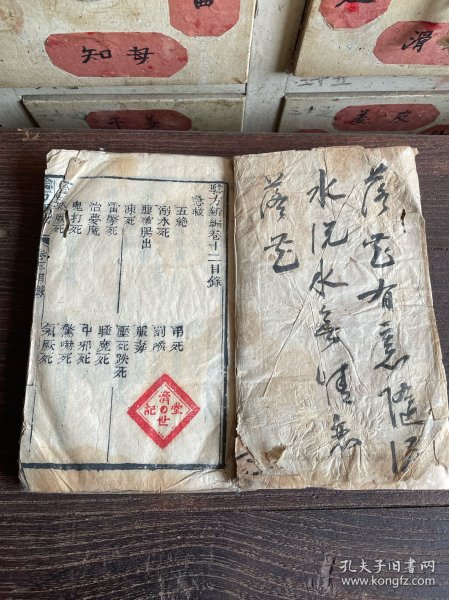 知母
滑
落花有意隨流
水流水無情恋
落花
驗方新編卷十二目錄
急救
五絕
弔死
溺水死
割喉
腹破腸出
服毒
凍死
壓死跌死
雷擊死
魔死
治夢魘
中邪死
鬼打死
驚嚇死
厥死
氣厥死
濟世
堂記
孔夫子旧书网
www.kongfz.com